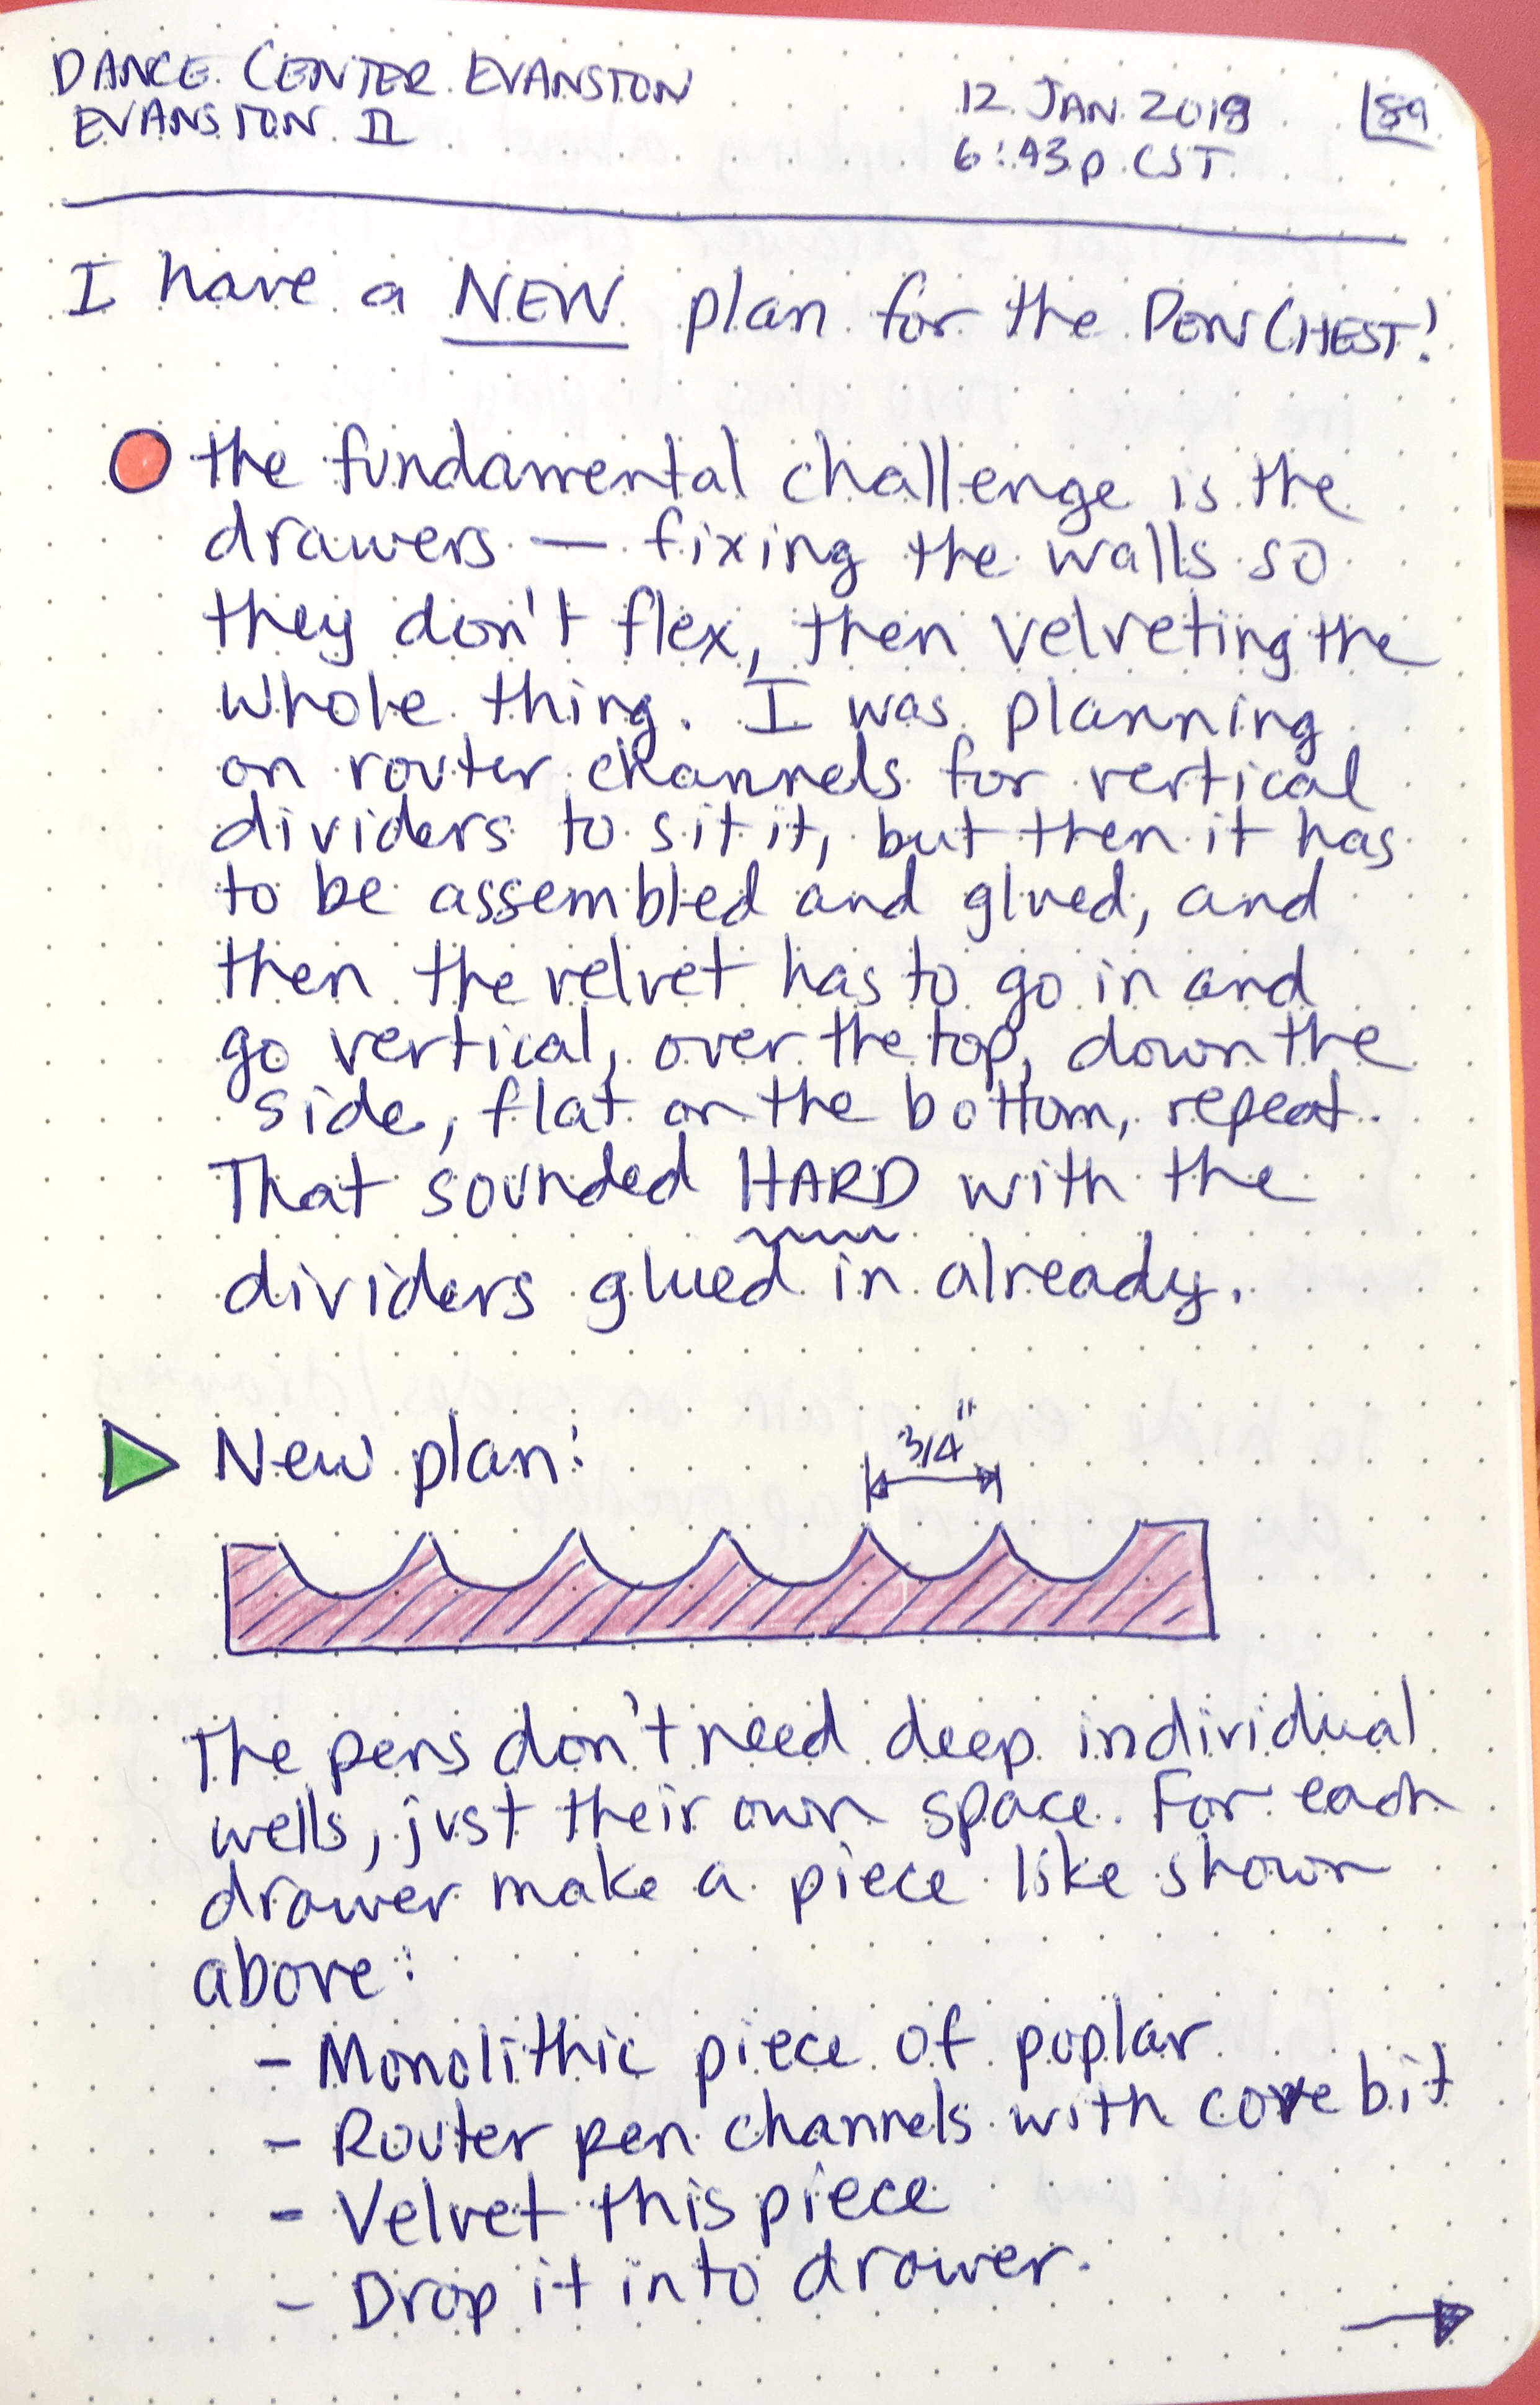 DANCE CENTER EVANSTON
EVANSTON IL
12 JAN 2018
6:43p CST
89
I have a NEW plan for the PEN CHEST!
the fundamental challenge is the
drawers — fixing the walls so
they don't flex, then velveting the
whole thing. I was planning
on router channels for vertical
dividers to sit it, but then it has
to be assembled and glued, and
then the velvet has to go in and
go vertical, over the top, down the
side, flat on the bottom, repeat.
That sounded HARD with the
dividers glued in already.
New plan:
3/4"
The pens don't need deep individual
wells, just their own space. For each
drawer make a piece like shown
above:
- Monolithic piece of poplar
- Router pen channels with cove bit
- Velvet this piece
- Drop it into drawer.